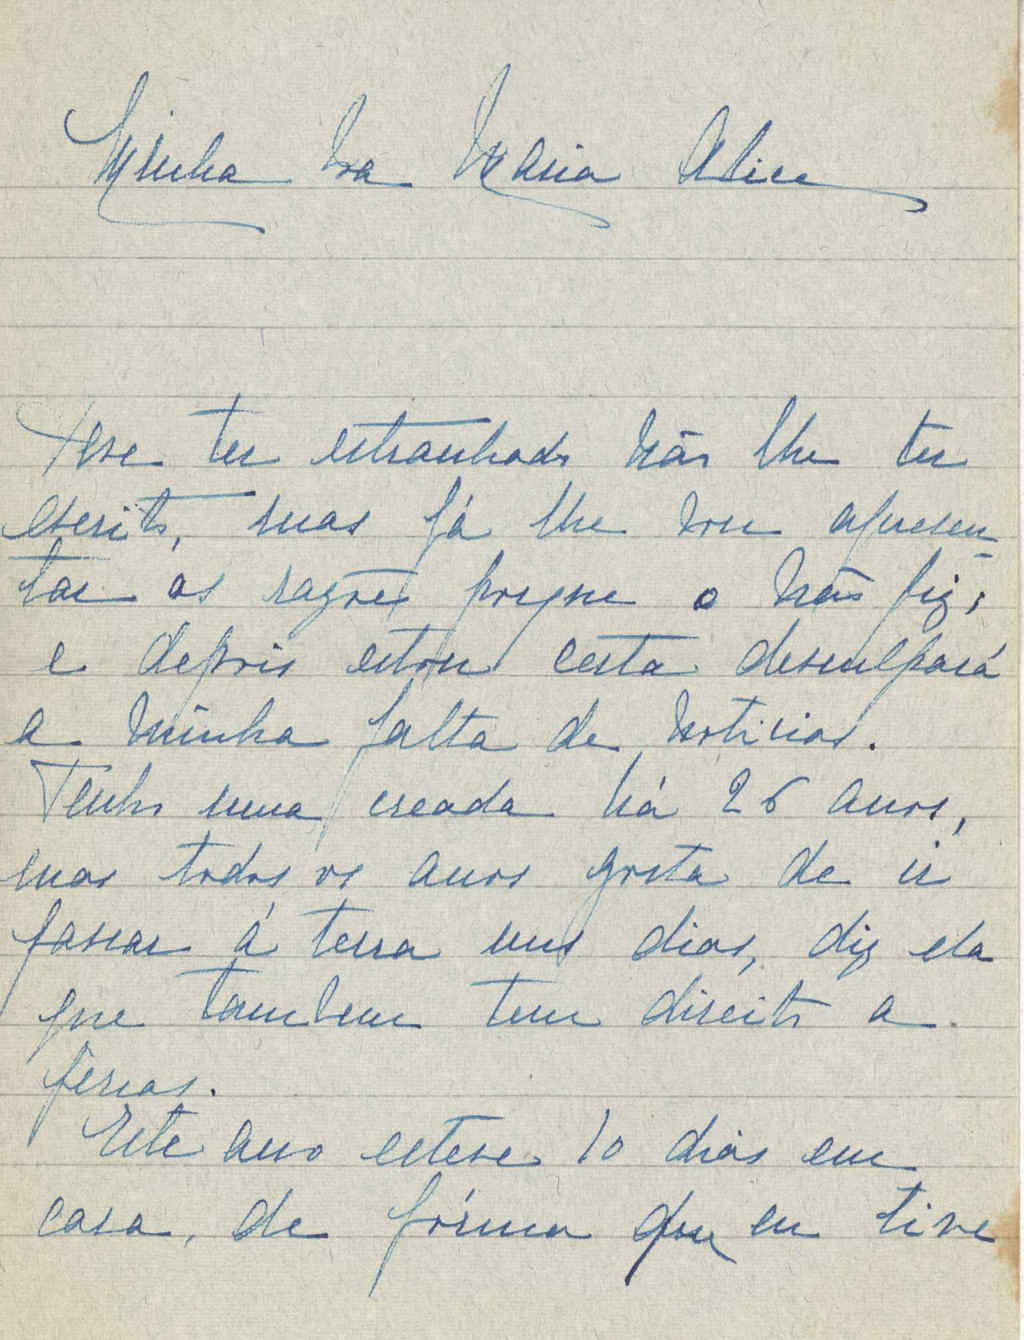 Minha Sra Maria Alice
Deve ter estranhado não lhe ter
escrito, mas já lhe vou apresen-
tar as razões porque o não fiz,
e depois estou certa desculpará
a minha falta de noticias.
Tenho uma creada há 26 anos,
mas todos os anos gosta de ir
passar á terra uns dias, diz ela
que tambem tem direito a
ferias.
Este ano esteve 10 dias em
casa, de fórma que eu tive